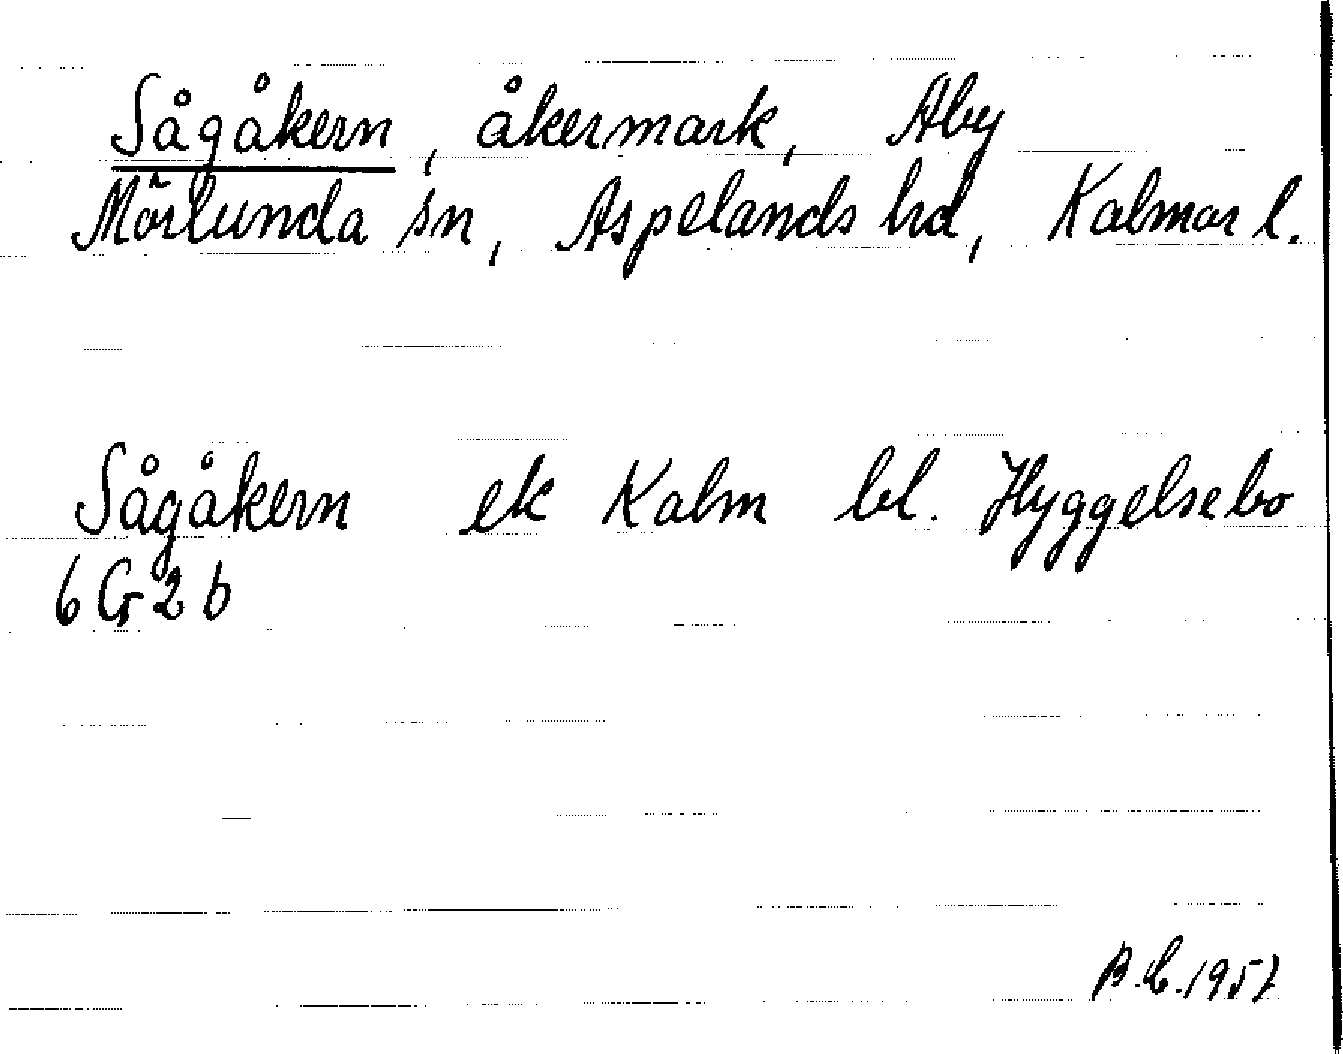 Sågåkern, åkermark, Åby
Mörlunda sn, Aspelands hd, Kalmar l.
Sågåkern ek Kalm bl. Hyggelsebo
6 G 2 b
1957